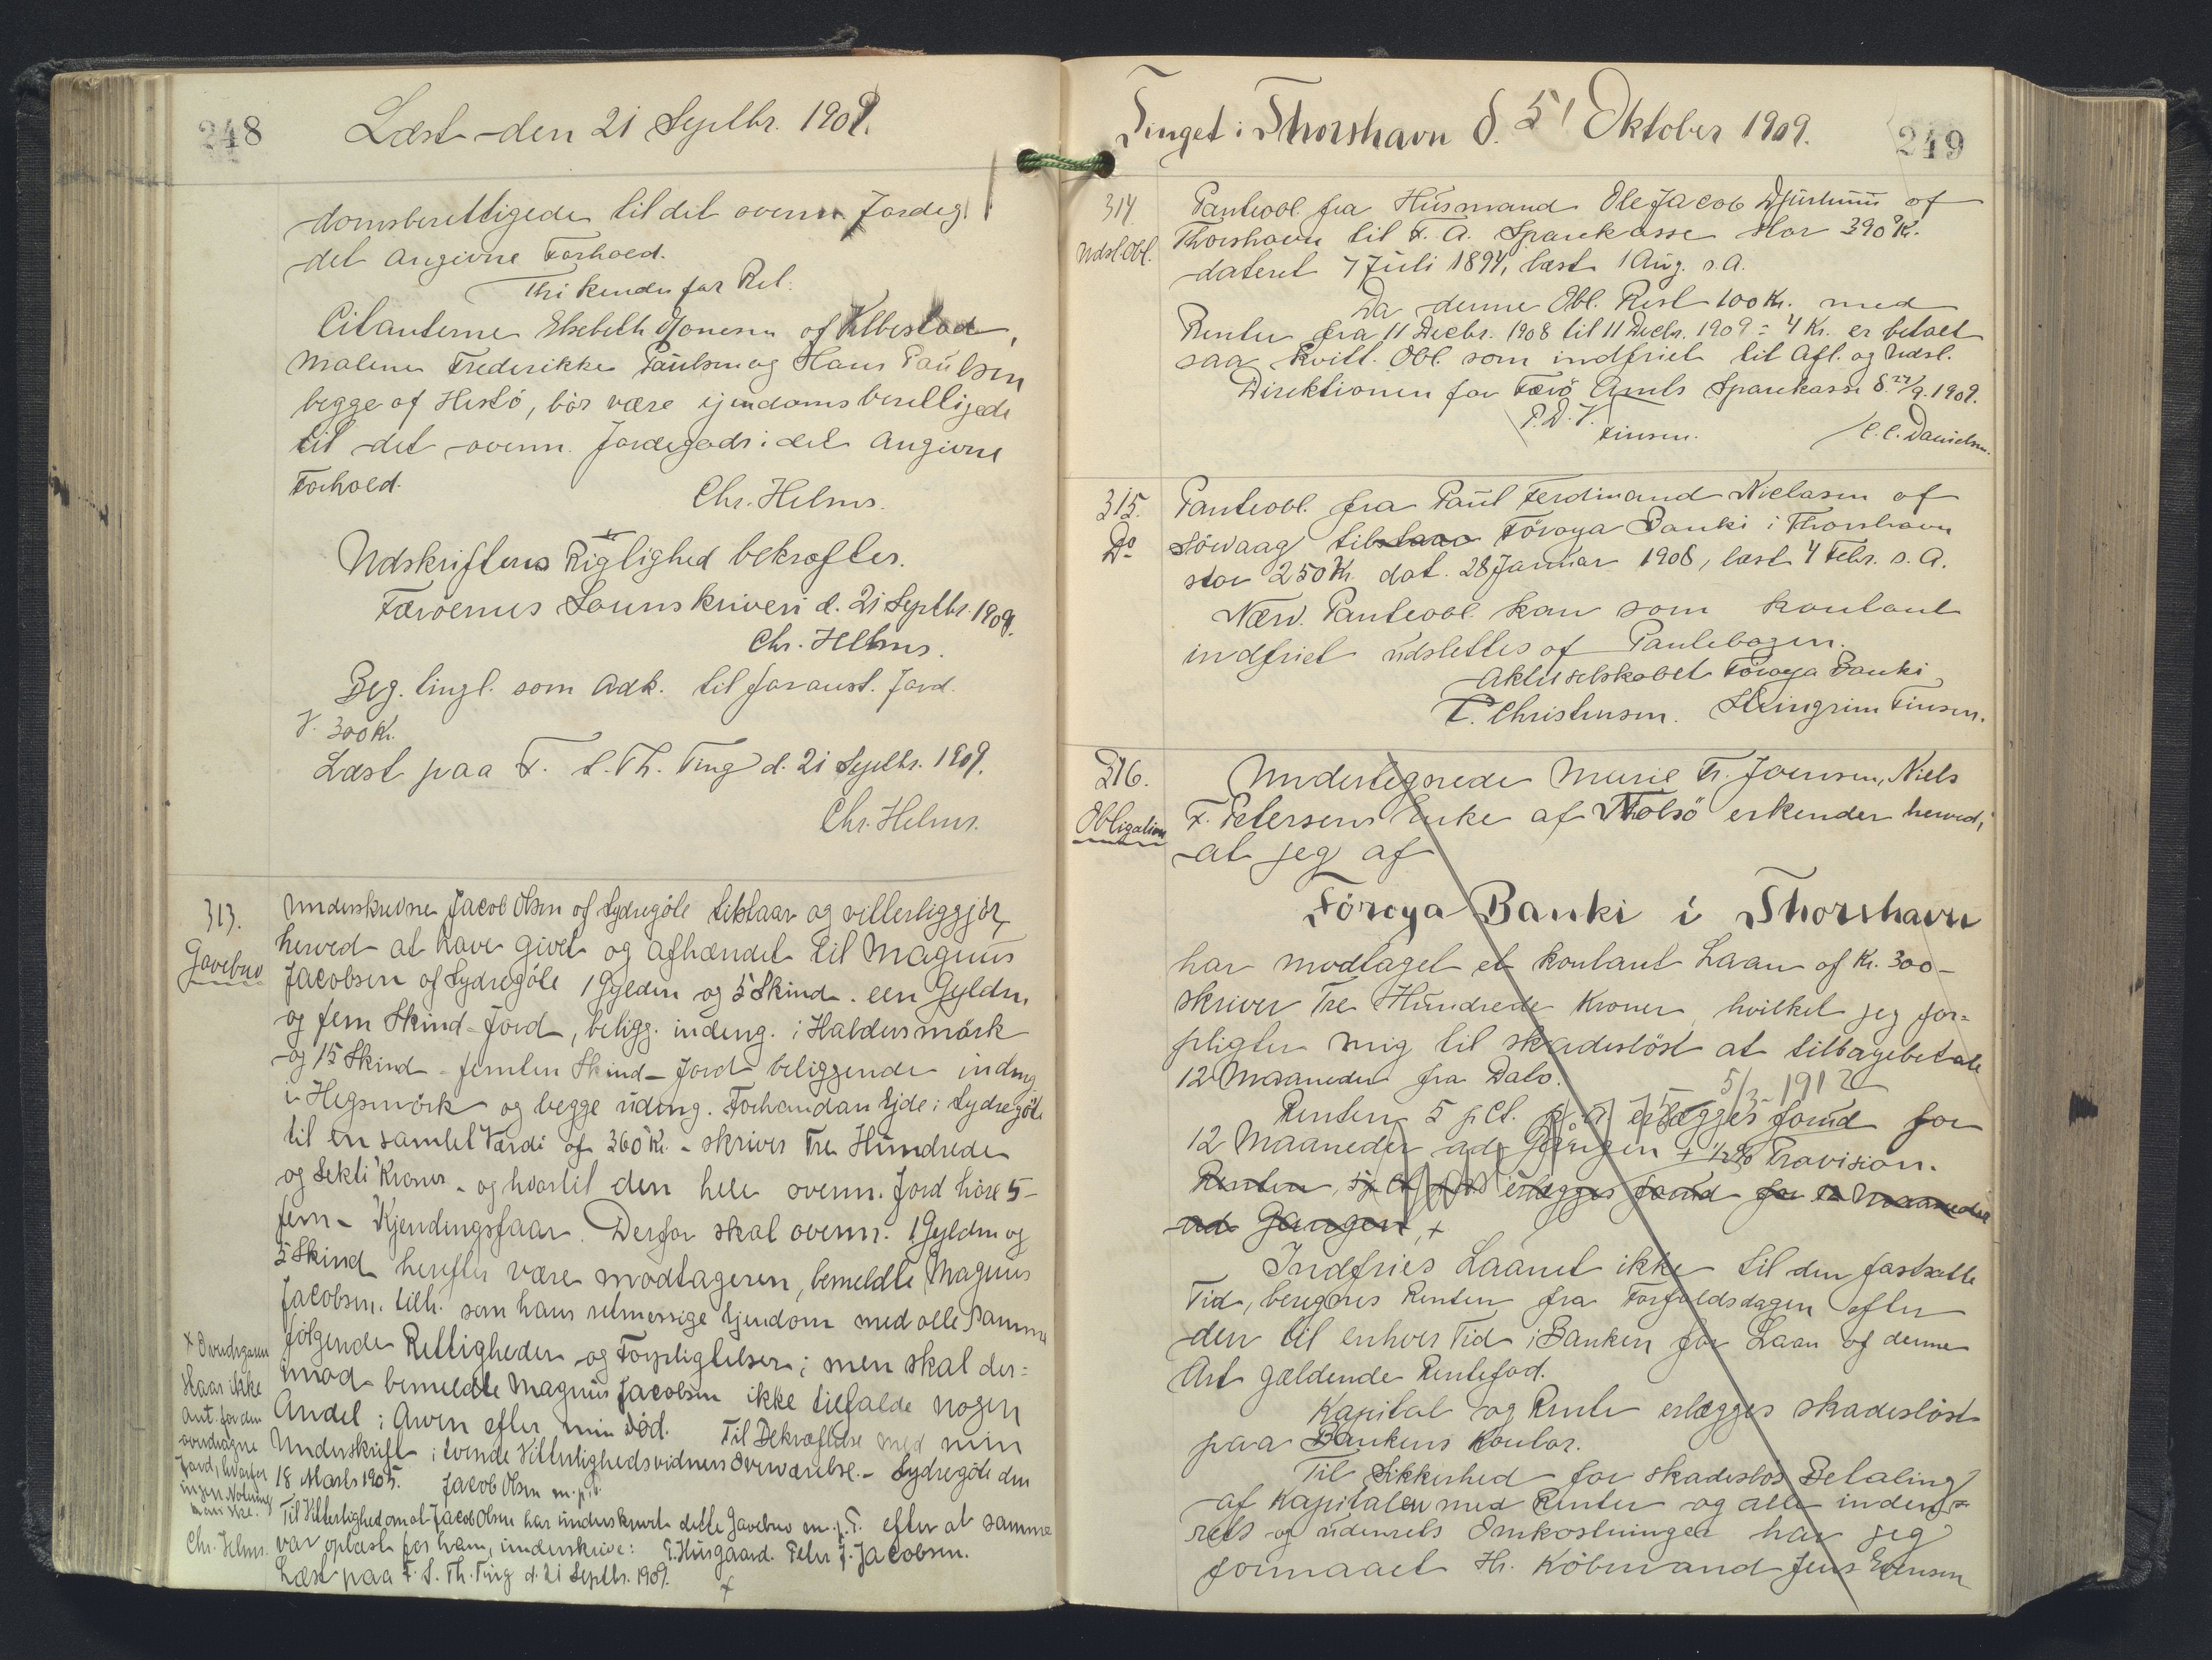 248
Læst den 21 Septbr. 1909.
domsberettigede til det ovenn. Jordeg.
det angivne Forhold.
Thi kendes for Ret:
Citanterne Elsebeth Joensen af Velbestad,
Malene Frederikke Paulsen og Hans Paulsen
begge af Hestö, bör være ejendomsberettigede
til det ovenn. Jordegods i det angivne
Forhold.
Chr. Helms.
Udskriftens Rigtighed bekræftes.
Færöernes Sorenskriveri d. 21 Septbr. 1909.
Chr. Helms.
Beg. tingl. som Adk. til foranst. Jord.
V. 300 Kr.
Læst paa F. S. Th. Ting d. 21 Septbr. 1909.
Chr. Helms.
313.
Gavebrev
Underskrevne Jacob Olsen af Sydregöte tilstaar og vitterliggjör
herved at have givet og afhændet til Magnus
Jacobsen af Sydregöte 1 Gylden og 5 Skind - een Gylden
og fem Skind - Jord, beligg. indeng. i Haldersmörk
og 15 Skind - femten Skind - Jord beliggende indeng.
i Hegsmörk og begge udeng. Forhandan Ejde i Sydregöte
til en samlet Værdi af 360 Kr. - skriver Tre Hundrede
og Seksti Kroner - og hvortil den hele ovenn. Jord höre 5 -
fem - Kjendingsfaar. Derfor skal ovenn. 1 Gylden og
5 Skind herefter være modtageren, bemeldte Magnus
Jacobsen, tilh. som hans retmessige Ejendom med alle samme
fölgende Rettigheder og Forpligtelser; men skal der=
imod bemeldte Magnus Jacobsen ikke tilfalde nogen
Andel i Arven efter min Död. Til Bekræftelse med min
Underskrift i tvende Vitterlighedsvidners Overværelse. - Sydregöte den
18 Marts 1905. Jacob Olsen m. p. P.
Til Vitterlighed om at Jacob Olsen har underskrevet dette Gavebrev m. f. P. efter at samme
var oplæst for ham, underskrive: P. Husgaard. Peter J. Jacobsen.
Læst paa F. S. Th. Ting d. 21 Septbr. 1909. +
+ Overdrageren
staar ikke
ant. for den
overdragne
Jord, hvorfor
Chr. Helms.
Tinget i Thorshavn d. 5' Oktober 1909.
249
314
Udsl. Obl.
Panteobl. fra Husmand Ole Jacob Djurhuus af
Thorshavn til F. A. Sparekasse stor 390 Kr.
dateret 7 Juli 1894, læst 1 Aug. s. A.
Da denne Obl. Rest 100 Kr. med
Renter fra 11 Decbr. 1908 til 11 Decbr. 1909 = 4 Kr. er betalt
saa kvitt. Obl. som indfriet til Afl. og Udsl.
Direktionen for Færö Amts Sparekasse d. 27/9. 1909.
P. D. V.
Finsen.
C. C. Danielsen.
315.
Do
Panteobl. fra Paul Ferdinand Niclasen af
Sörvaag til Föroya Banki i Thorshavn
stor 250 Kr. dat. 28 Januar 1908, læst 4 Febr. s. A.
Nærv. Panteobl. kan som kontant
indfriet udslettes af Pantebogen.
Aktieselskabet Föroya Banki
C. Christensen. Steingrim Finsen.
316.
Obligation
Undertegnede Marie Fr. Joensen, Niels
F. Petersens Enke af Nolsö erkender herved,
at jeg af
Föroya Banki i Thorshavn
har modtaget et kontant Laan af Kr. 300 -
skriver Tre Hundrede Kroner, hvilket jeg for=
pligter mig til skadeslöst at tilbagebetale
12 Maaneder fra Dato.
5/3 1912
Renten 5 pCt. p. a. erlægges forud for
12 Maaneder ad Gangen + 1/2% Provision.
Renten, 5 p Ct erlægges forud for 12 Maaneder
ad Gangen, +
Indfries Laanet ikke til den fastsatte
Tid, beregnes Renten fra Forfaldsdagen efter
den til enhver Tid i Banken for Laan af denne
Art gældende Rentefod.
Kapital og Rente erlægges skadeslöst
paa Bankens Kontor.
Til Sikkerhed for skadeslös Betaling
af Kapitalen med Renter og alle inden=
rets og udenrets Omkostninger har jeg
formaaet Hr. Köbmand Jens Evensen